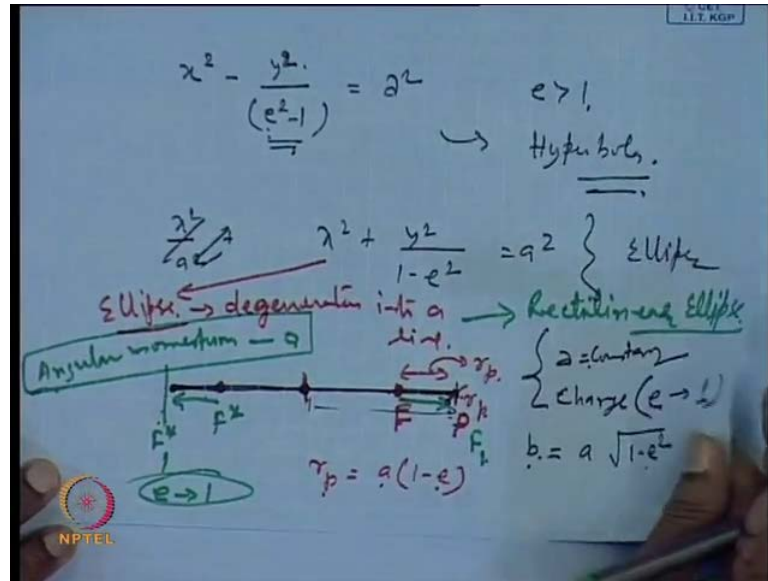 I.I.T. KGP
x² - y²/(e²-1) = a²
e > 1
Hyperbola.
x² + y²/(1-e²) = a² } Ellipse
Ellipse → degenerates into a line. → Rectilinear Ellipse
Angular momentum — a
{ a = constant
r_p
{ change (e → 1)
F* F* F r_p P
F₁
b = a √(1-e²)
e → 1
r_p = a(1-e)
NPTEL